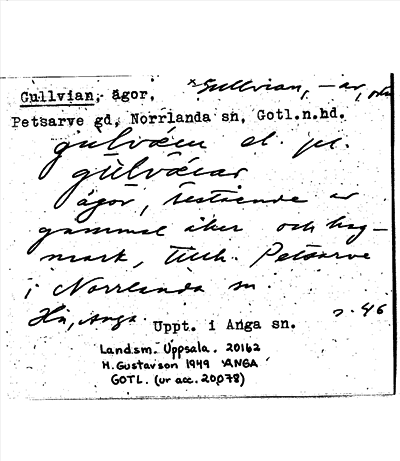 Gullvian, ägor, *Gullvian, -ar,
Petsarve gd, Norrlanda sn, Gotl.n.hd.
gulväen el. pl.
gulväear
ägor, bestående av
gammal åker och hag-
mark, tillh. Petsarve
i Norrlanda sn.
Hn, Anga. s. 46
Uppt. i Anga sn.
Landsm. Uppsala. 20162
H. Gustavson 1949 ANGA
GOTL. (ur acc. 20078)